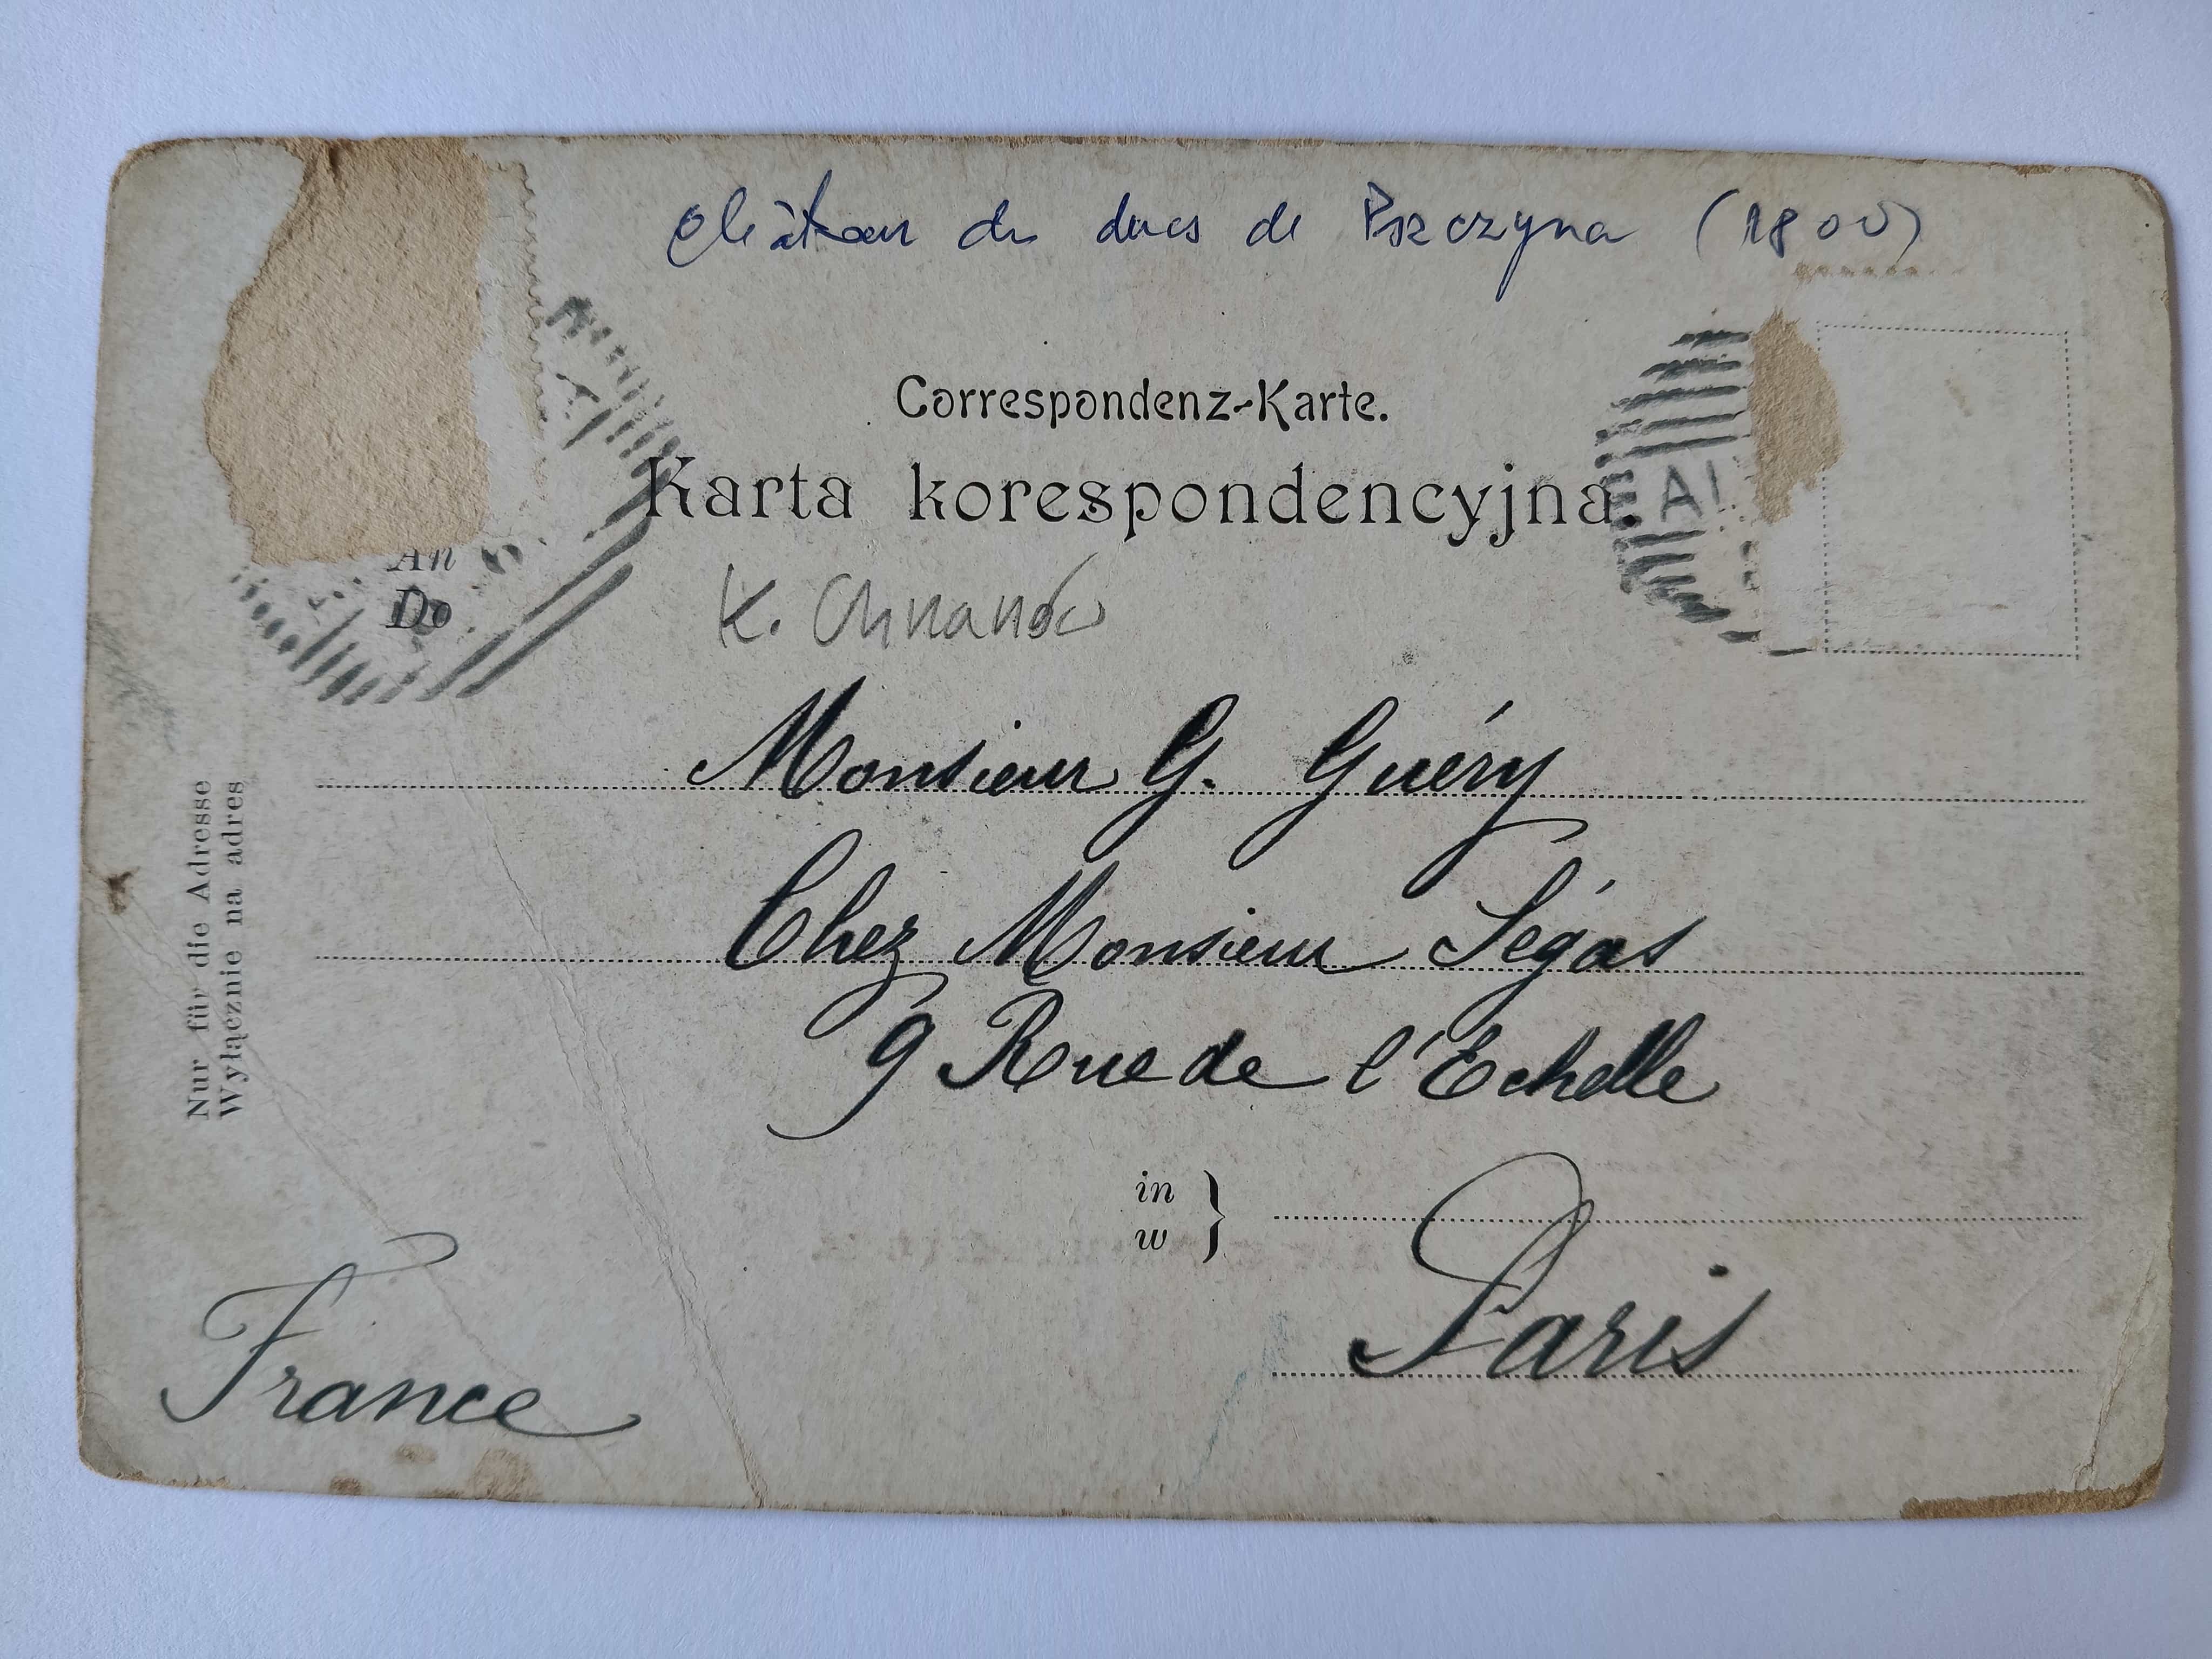 Château des ducs de Pszczyna (1800)
Correspondenz-Karte.
Karta korespondencyjna.
An
Do
K.
Monsieur G. Guéry
Chez Monsieur Ségas
9 Rue de l'Echelle
in
w
Paris
France
Nur für die Adresse
Wyłącznie na adres